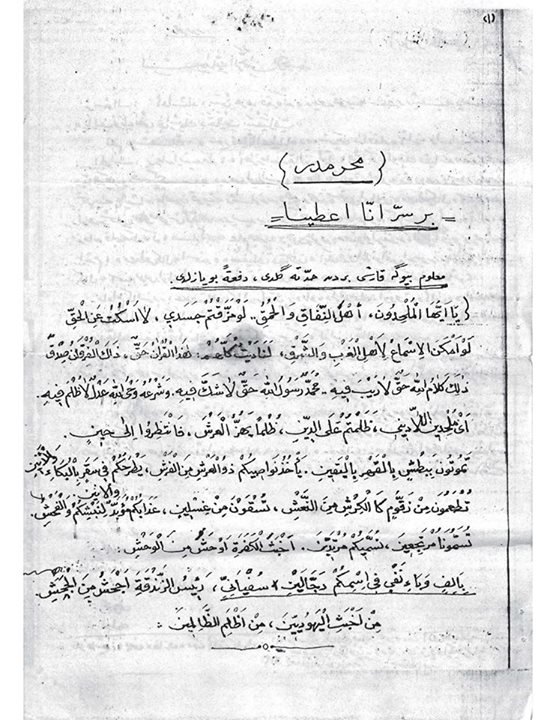 (١)
{ محرمدر }
= بر سرّ انّا اعطينا =
معلوم بيوك قارشى بردن حدّته كلدى ، دفعةً بو يازلدى
{ يَا اَيُّهَا الْمُلْحِدُونَ، اَهْلُ النِّفَاقِ وَ الْحُمُقِ.. لَوْ حَرَّقْتُمْ جَسَدِي ، لَا اَسْكُتُ عَنِ الْحَقِّ
لَوْ اَمْكَنَ الْاِسْمَاعُ لِاَهْلِ الْغَرْبِ وَ الشَّرْقِ، لَنَادَيْتُ كُلَّهُمْ: هٰذَا الْقُرْاٰنُ حَقٌّ ، ذَاكَ الْفُرْقَانُ صِدْقٌ
ذٰلِكَ كَلَامُ اللهِ حَقٌّ لَا رَيْبَ فِيهِ. مُحَمَّدٌ رَسُولُ اللهِ حَقٌّ لَا شَكَّ فِيهِ. وَشَرْعُهُ وَحْىُ اللهِ عَدْلٌ لَا ظُلْمَ فِيهِ.
اَىْ مُلْحِدِينَ اللَّادِينِى، ظَلَمْتُمْ عَلَى الدِّينِ، ظُلْمًا يَهُزُّ الْعَرْشَ، فَانْتَظِرُوا اِلٰى حِينٍ
تَمُوتُونَ بِبَطْشٍ بِالْقَهْرِ بِالْيَقِينِ. يَأْخُذُ نَوَاصِيَكُمْ ذُو الْعَرْشِ مِنَ الْفَرْشِ، يَطْرَحُكُمْ فِى سَقَرَ بِالْبُكَاءِ وَالْاَنِينِ
تُطْعَمُونَ مِنْ زَقُّومٍ كَالْكِرْشِ مِنَ النَّعْشِ ، تُسْقَوْنَ مِنْ غِسْلِينٍ، عَذَابُكُمْ مُؤَبَّدٌ لِنَبْشِكُمْ وَالْفُحْشِ.
تَسَمَّوْنَا مُرْتَجِعِينَ، نُسَمِّيكُمْ مُرْتَدِّينَ. اَخْبَثُ الْكَفَرَةِ اَوْحَشُ مِنَ الْوَحْشِ :
بِاَلِفٍ وَ يَاءٍ نَفْيٌ فِى اسْمِكُمْ دَجَّالَيْنِ سُفْيَانِىٍّ ، رَئِيسُ الزَّنْدَقَةِ اَجْحَشُ مِنَ الْجَحْشِ.
مِنْ اَخْبَثِ الْيَهُودِيِّينَ ، مِنْ اَظْلَمِ الظَّالِمِينَ :